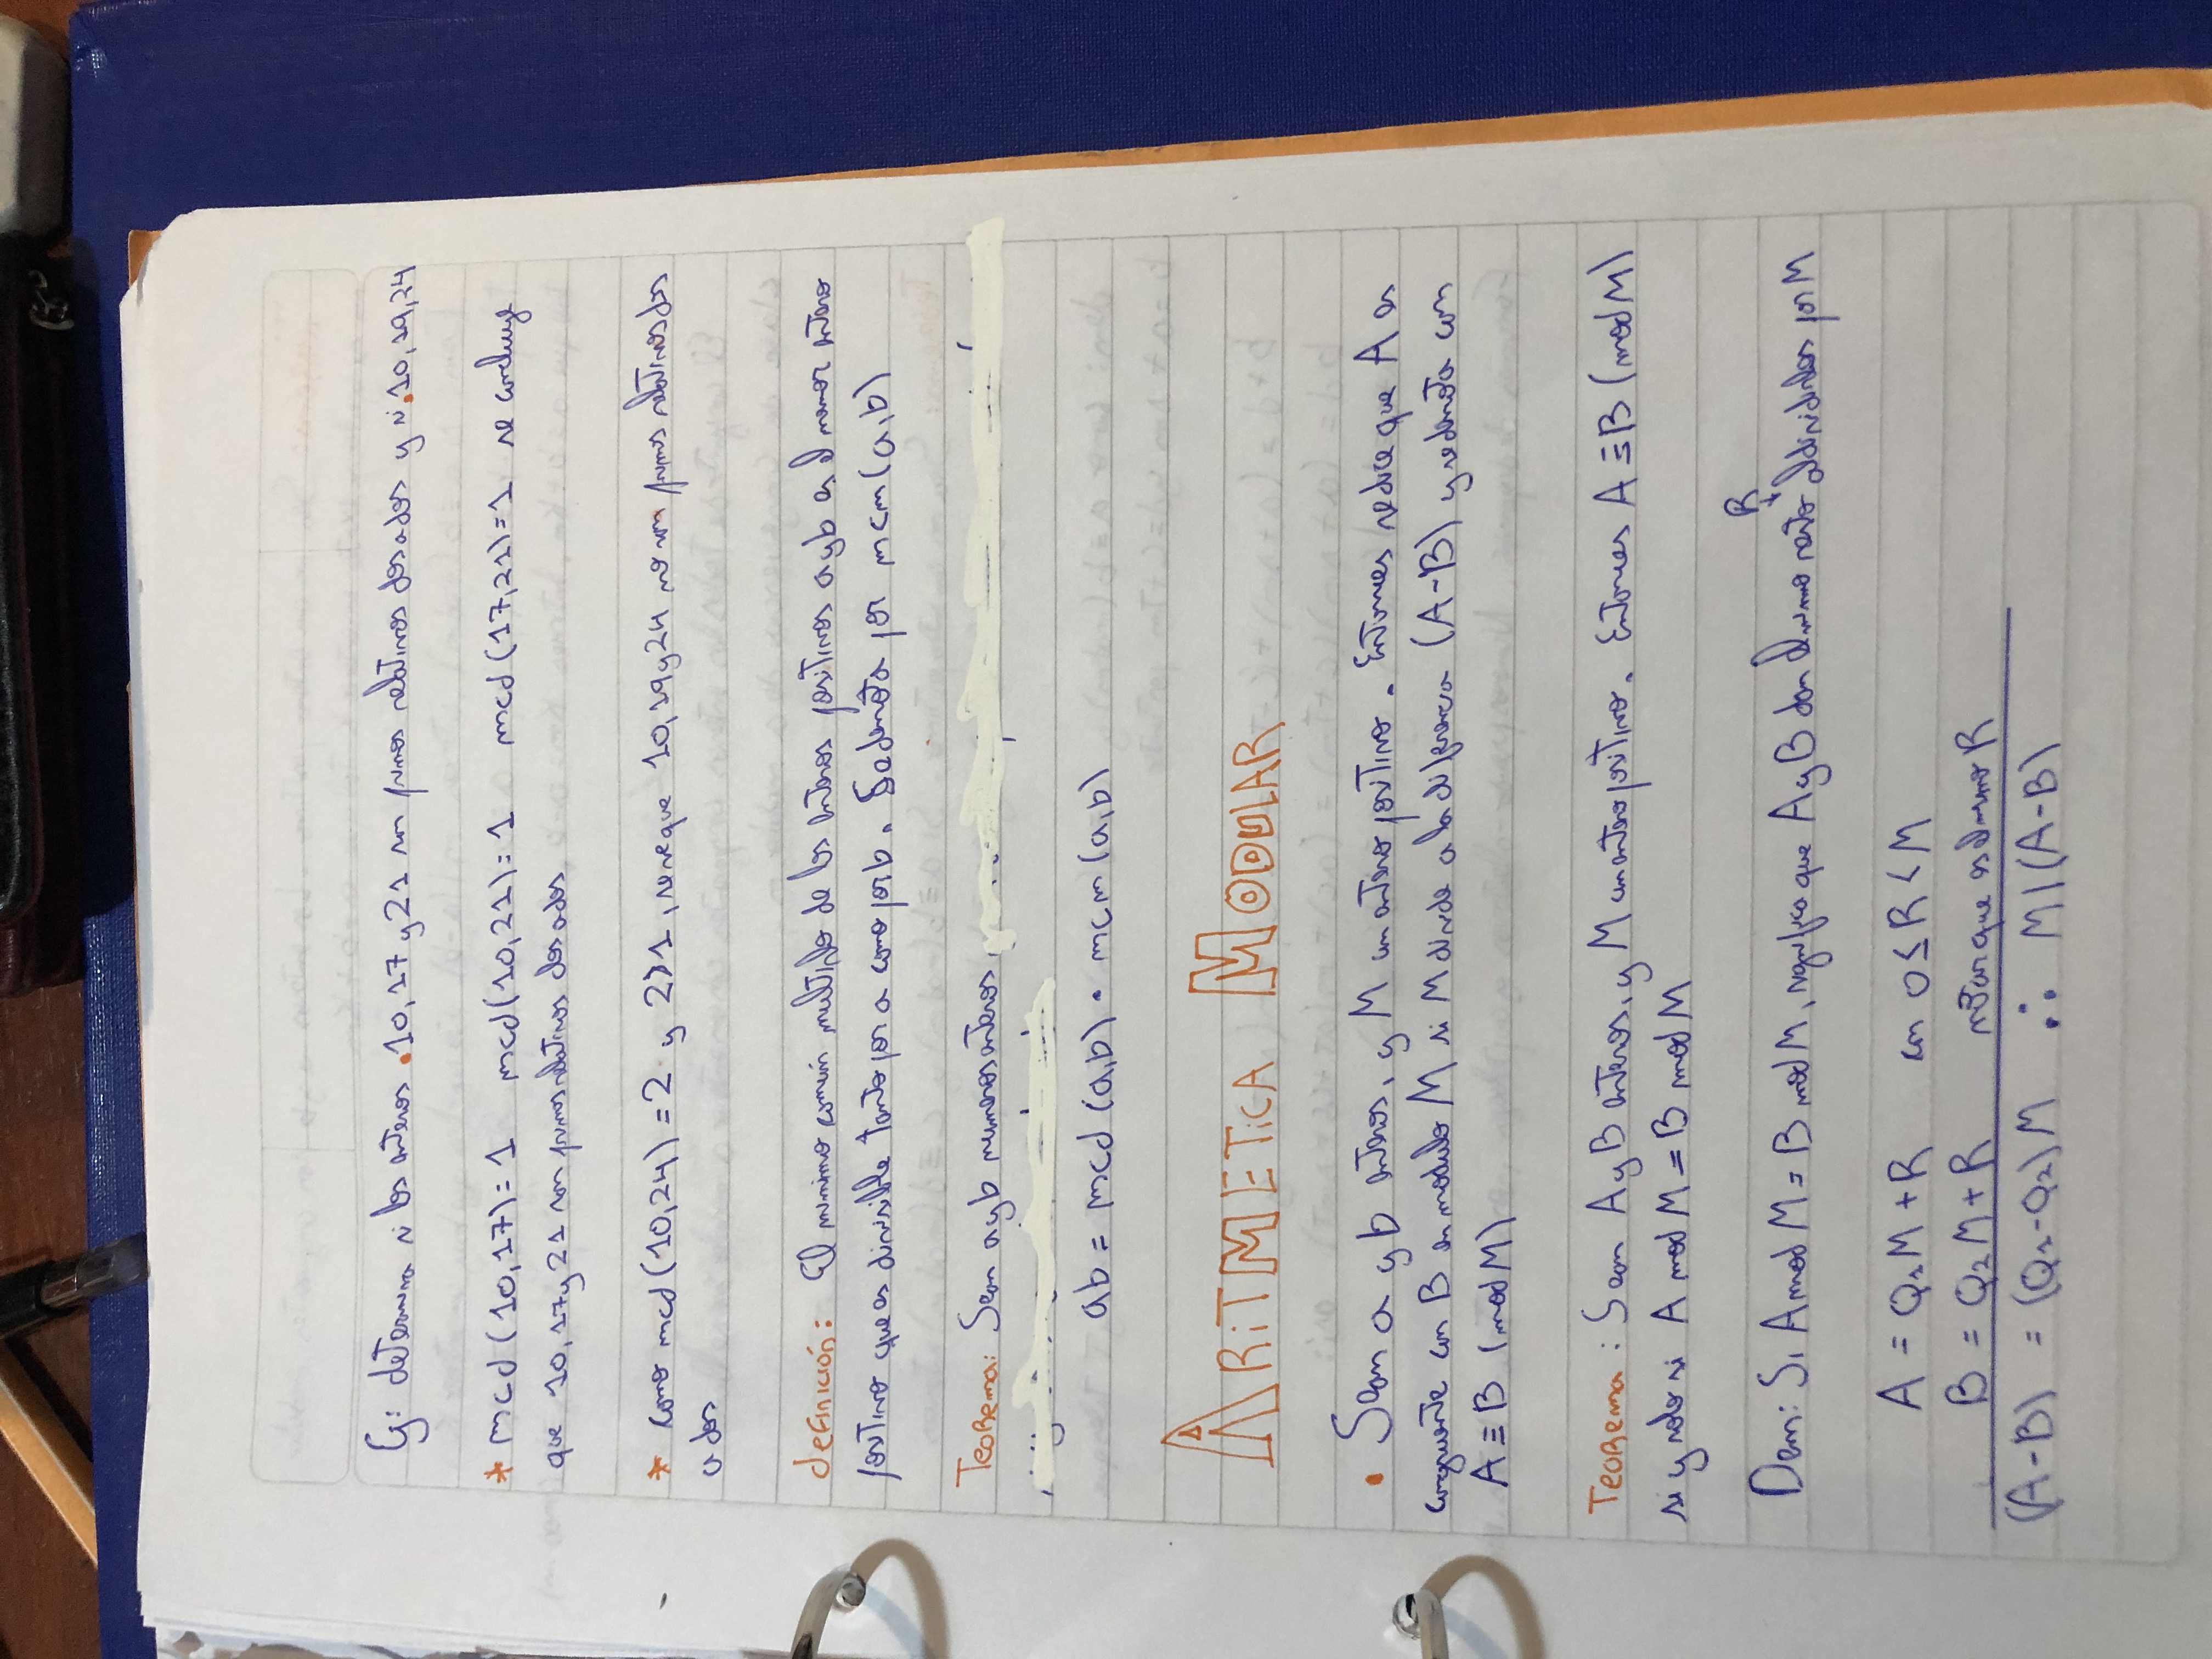 Ej: determina si los enteros .10, 17 y 21 son primos relativos dos a dos y si .10, 19, 24
* mcd (10,17) = 1 mcd(10,21) = 1 mcd (17,21) = 1 se concluye
que 10, 17 y 21 son primos relativos dos a dos
* como mcd (10,24) = 2 y 2>1, se ve que 10, 19 y 24 no son primos relativos dos
a dos
definición: El minimo común multiplo de los enteros positivos a y b es el menor entero
positivo que es divisible tanto por a como por b. Se denota por mcm (a,b)
Teorema: Sean a y b numeros enteros,
ab = mcd (a,b) • mcm (a,b)
ARiTMETiCA MODULAR
• Sean a y b enteros, y M un entero positivo. Entonces se dice que A es
congruente con B en modulo M si M divide a la diferencia (A-B) y se denota con
A ≡ B (mod M)
Teorema: Sean A y B enteros, y M un entero positivo. Entonces A ≡ B (mod M)
si y solo si A mod M = B mod M
R
↓
Dem: Si A mod M = B mod M, significa que A y B dan el mismo resto al dividirlos por M
A = Q₁M + R con 0 ≤ R < M
B = Q₂M + R notar que es el mismo R
(A-B) = (Q₁-Q₂)M ∴ M|(A-B)